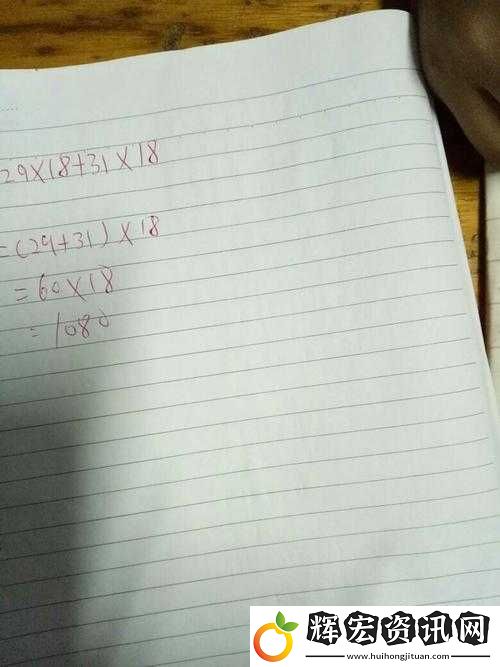 29×18+31×18
=(29+31)×18
=60×18
=1080
辉宏资讯网
www.huihongjituan.com